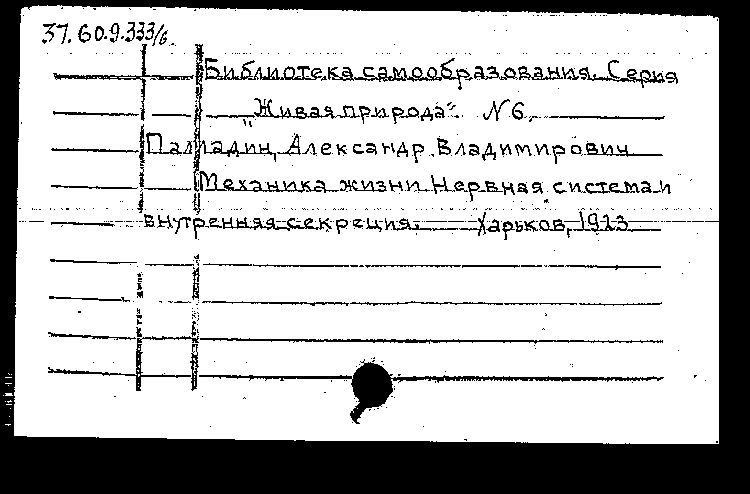 37.60.9.333/6.
Библиотека самообразования. Серия
"Живая природа". N 6.
Палладин, Александр Владимирович
Механика жизни. Нервная система и
внутренняя секреция. Харьков, 1923